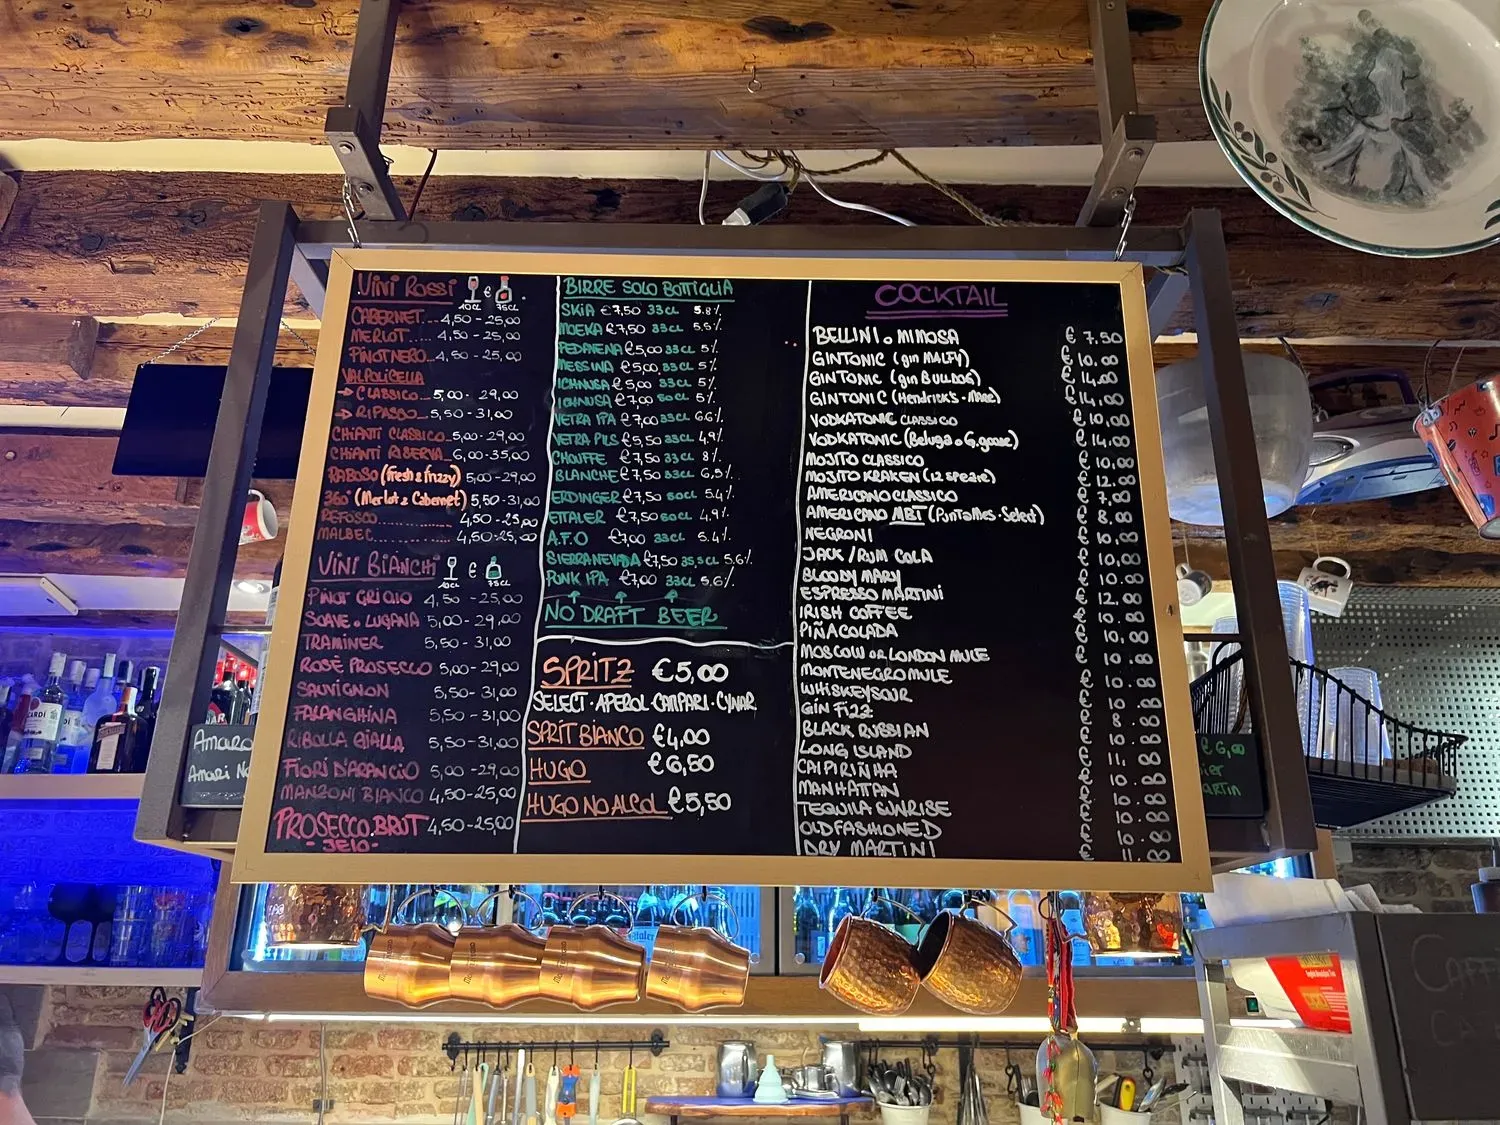 VINI ROSSI €
10CL 75CL
CABERNET....4,50-25,00
MERLOT....4,50-25,00
PINOT NERO...4,50-25,00
VALPOLICELLA
→ CLASSICO...5,00-29,00
→ RIPASSO...5,50-31,00
CHIANTI CLASSICO..5,00-29,00
CHIANTI RISERVA..6,00-35,00
RABOSO (fresh & frizzy) 5,00-29,00
360° (Merlot & Cabernet) 5,50-31,00
REFOSCO............4,50-25,00
MALBEC.............4,50-25,00
VINI BIANCHI €
10CL 75CL
PINOT GRIGIO 4,50-25,00
SOAVE o LUGANA 5,00-29,00
TRAMINER 5,50-31,00
ROSÈ PROSECCO 5,00-29,00
SAUVIGNON 5,50-31,00
FALANGHINA 5,50-31,00
RIBOLLA GIALLA 5,50-31,00
FIORI D'ARANCIO 5,00-29,00
MANZONI BIANCO 4,50-25,00
PROSECCO BRUT 4,50-25,00
- JEIO -
BIRRE SOLO BOTTIGLIA
SKIA €7,50 33CL 5.8%
MOEKA €7,50 33CL 5.5%
PEDAVENA €5,00 33CL 5%
MESSINA €5,00 33CL 5%
ICHNUSA €5,00 33CL 5%
ICHNUSA €7,00 50CL 5%
VETRA IPA €7,00 33CL 6.6%
VETRA PILS €5,50 33CL 4,9%
CHOUFFE €7,50 33CL 8%
BLANCHE €7,50 33CL 6,5%
ERDINGER €7,50 50CL 5.4%
ETTALER €7,50 50CL 4.9%
A.F.O €7,00 33CL 5.4%
SIERRA NEVADA €7,50 35,5CL 5.6%
PUNK IPA €7,00 33CL 5.6%
NO DRAFT BEER
SPRITZ €5,00
SELECT·APEROL·CAMPARI·CYNAR
SPRIT BIANCO €4,00
HUGO €6,50
HUGO NO ALCOL €5,50
COCKTAIL
BELLINI o MIMOSA € 7,50
GINTONIC (gin MALFY) € 10,00
GINTONIC (gin BULLDOG) € 14,00
GINTONIC (Hendrick's-Mare) € 14,00
VODKATONIC CLASSICO € 10,00
VODKATONIC (Beluga o G.goose) € 14,00
MOJITO CLASSICO € 10,00
MOJITO KRAKEN (12 spezie) € 12,00
AMERICANO CLASSICO € 7,00
AMERICANO MBT (PuntaMes-Select) € 8,00
NEGRONI € 10,00
JACK/RUM COLA € 10,00
BLOODY MARY € 10.00
ESPRESSO MARTINI € 12.00
IRISH COFFEE € 10.00
PIÑACOLADA € 10,00
MOSCOW OR LONDON MULE € 10.00
MONTENEGRO MULE € 10.00
WHISKEY SOUR € 10.00
GIN FIZZ € 8.00
BLACK RUSSIAN € 10.00
LONG ISLAND € 11.00
CAIPIRIÑHA € 10.00
MANHATTAN € 10.00
TEQUILA SUNRISE € 10.00
OLD FASHIONED € 10.00
DRY MARTINI € 11.00
Amaro
Amari
€ 6,00